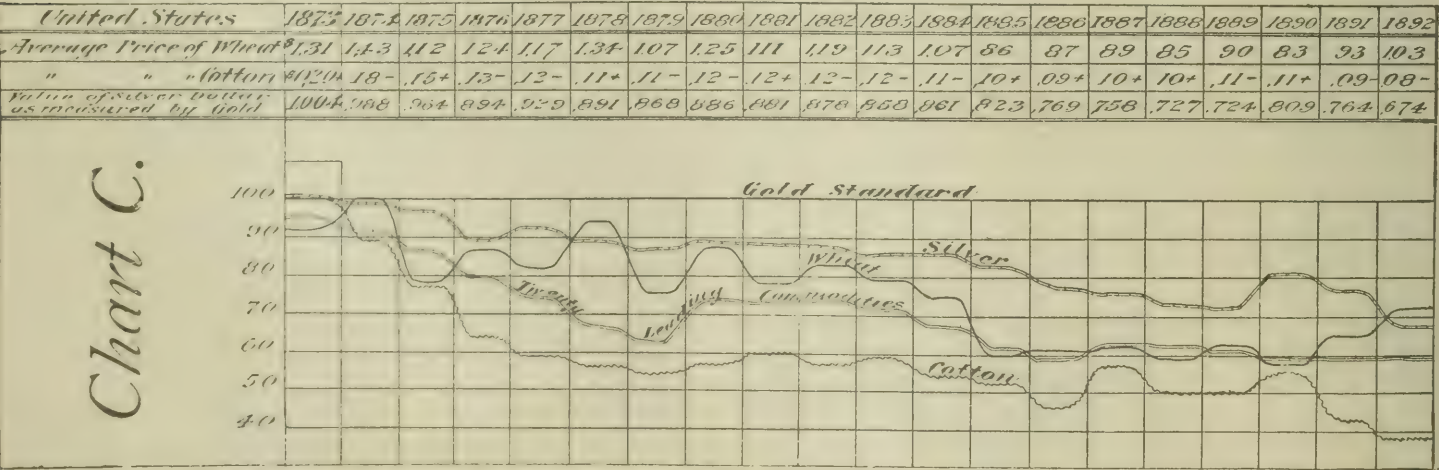 United States 1873 1874 1875 1876 1877 1878 1879 1880 1881 1882 1883 1884 1885 1886 1887 1888 1889 1890 1891 1892
Average Price of Wheat $1.31 1.43 1.12 1.24 1.17 1.34 1.07 1.25 1.11 1.19 1.13 1.07 86 87 89 85 90 83 93 1.03
" " " Cotton 18- .15+ .13- .12- .11+ .11- .12- .12+ .12- .12- .11- 10+ .09+ 10+ 10+ .11- .11+ .09- 08-
Value of Silver Dollar
as measured by Gold 1.004 .988 .964 .894 .929 .891 .868 .886 .881 .878 .858 .861 .823 .769 .758 .727 .724 .809 .764 .674
Chart C.
100
Gold Standard
90
Silver
Wheat
80
Twenty Leading Commodities
70
60
Cotton
50
40